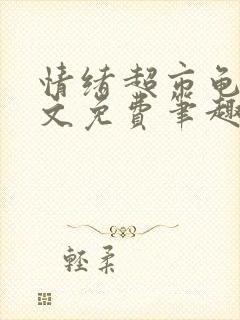 情绪超市龟
文免费笔趣
轻柔